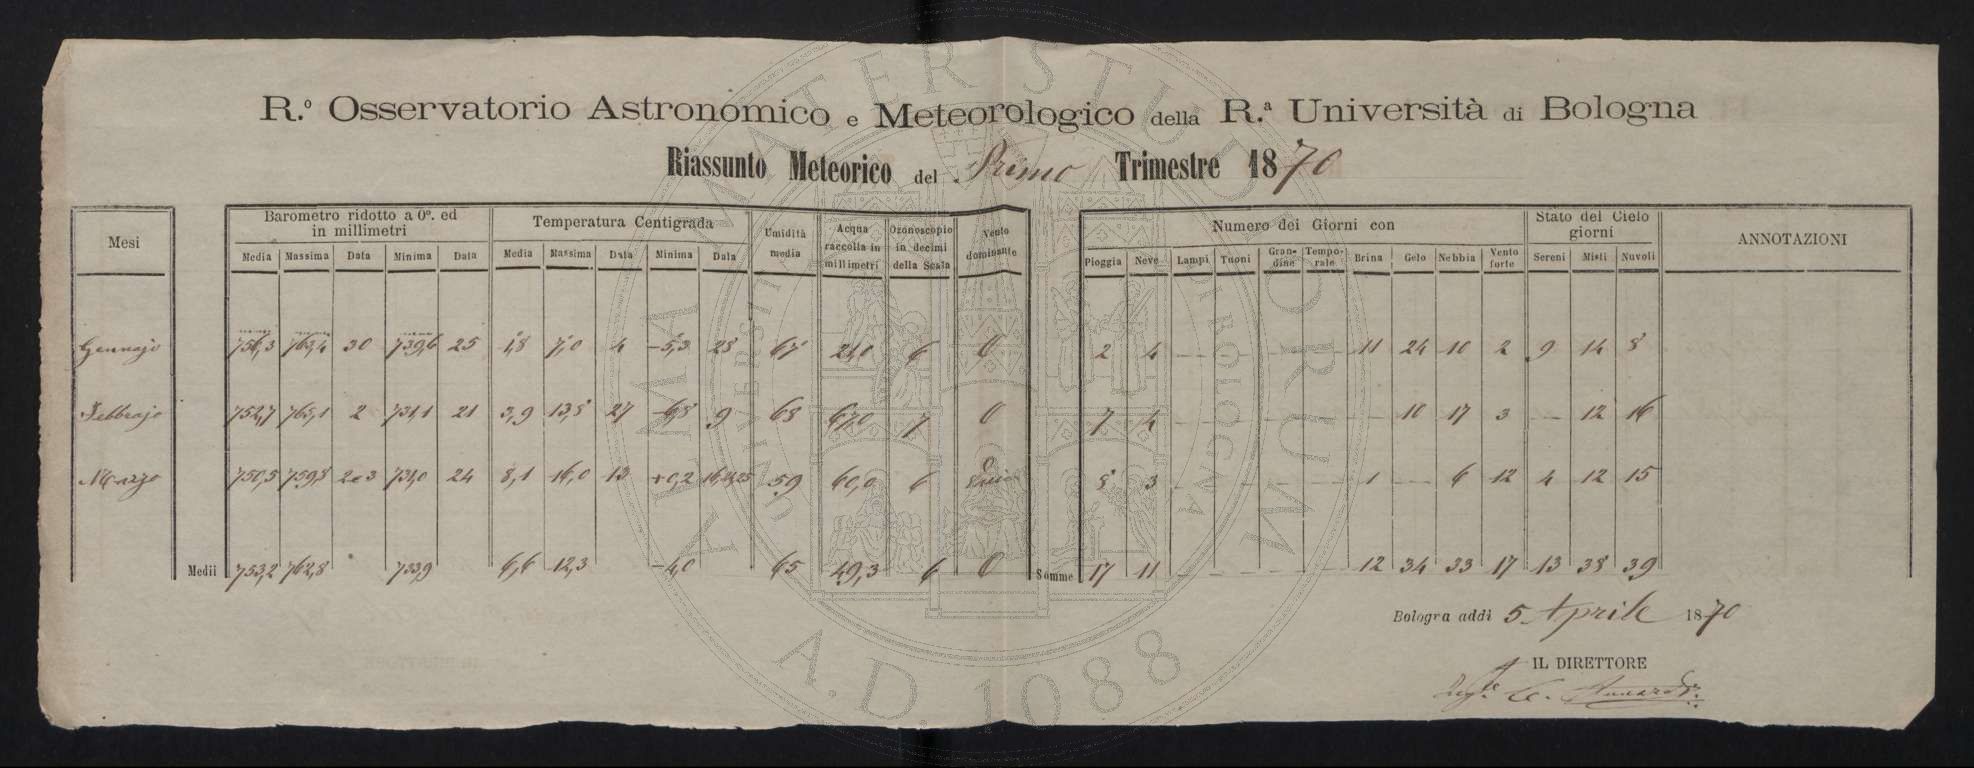 R.º Osservatorio Astronomico e Meteorologico della R.ª Università di Bologna
Riassunto Meteorico del Primo Trimestre 1870
Mesi
Barometro ridotto a 0º. ed in millimetri
Temperatura Centigrada
Umidità media
Acqua raccolta in millimetri
Ozonoscopio in decimi della Scala
Vento dominante
Numero dei Giorni con
Stato del Cielo giorni
ANNOTAZIONI
Media Massima Data Minima Data Media Massima Data Minima Data
Pioggia Neve Lampi Tuoni Grandine Temporale Brina Gelo Nebbia Vento forte Sereni Misti Nuvoli
Gennajo 756,3 763,4 30 739,6 25 1,8 7,0 4 -5,3 28 67 21,0 6 O 2 4 — — — — 11 24 10 2 9 14 8
Febbrajo 752,7 765,1 2 731,1 21 3,9 13,8 27 -6,8 9 68 67,0 7 O 7 4 — — — — — 10 17 3 — 12 16
Marzo 750,5 759,8 2e3 731,0 24 8,1 16,0 13 +0,2 59 60,0 6 O 8 3 — — — — 1 — 6 12 4 12 15
Medii 753,2 762,8 733,9 6,6 12,3 -4,0 65 49,3 6 O Somme 17 11 — — — — 12 34 33 17 13 38 39
Bologna addì 5 Aprile 1870
IL DIRETTORE
ALMA MATER STUDIORUM
UNIVERSITÀ DI BOLOGNA
A.D. 1088